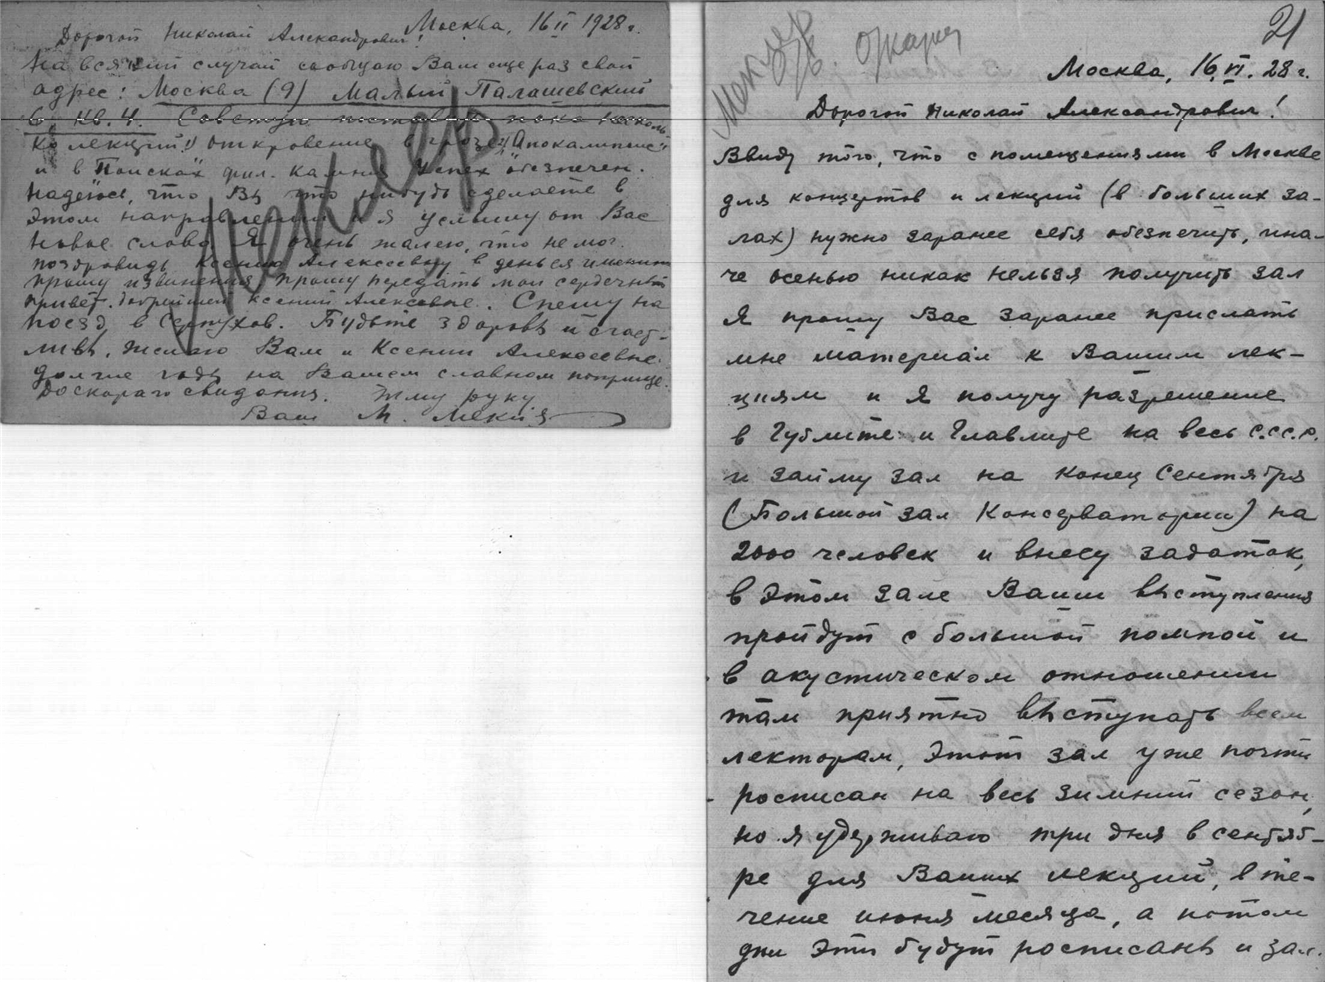 Москва, 16 II 1928 г.
Дорогой Николай Александрович!
На всякий случай сообщаю Вам еще раз свой
адрес: Москва (9) Малый Палашевский
6 кв. 4. Советую поставить пока несколь-
ко лекций: "Откровение в грозе", "Апокалипсис"
и в "Поисках фил. камня" Успех обеспечен.
Надеюсь, что Вы что нибудь сделаете в
этом направлении и я услышу от Вас
новое слово. Я очень жалею, что не мог
поздравить Ксению Алексеевну в день ея именин
прошу извинения прошу передать мой сердечный
привет. Ксении Алексеевне. Спешу на
поезд в Серпухов. Будьте здоровы и счаст-
ливы. Желаю Вам и Ксении Алексеевне
долгие годы на Вашем славном поприще.
До скораго свидания. Жму руку
Ваш М. Меклер
Меклер
21
Меклер
Москва, 16 VI. 28 г.
Дорогой Николай Александрович!
Ввиду того, что с помещениями в Москве
для концертов и лекций (в больших за-
лах) нужно заранее себя обезпечить, ина-
че осенью никак нельзя получить зал
Я прошу Вас заранее прислать
мне материал к Вашим лек-
циям и я получу разрешение
в Гублите и Главлите на весь С.С.С.Р.
и займу зал на конец Сентября
(Большой зал Консерватории) на
2000 человек и внесу задаток,
в этом зале Ваши выступления
пройдут с большой помпой и
в акустическом отношении
там приятно выступать всем
лекторам, этот зал уже почти
росписан на весь зимний сезон,
но я удерживаю три дня в сентяб-
ре для Ваших лекций, в те-
чение июня месяца, а потом
дни эти будут росписаны и зал